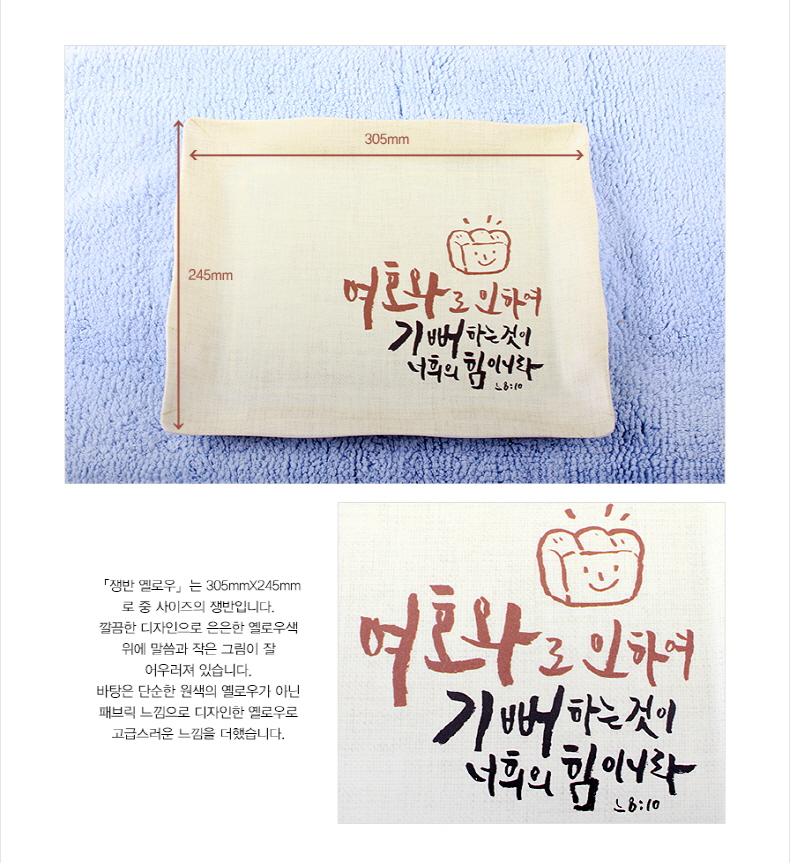 305mm
245mm
여호와로 인하여
기뻐하는것이
너희의 힘이니라
느8:10
「쟁반 옐로우」는 305mmX245mm
로 중 사이즈의 쟁반입니다.
깔끔한 디자인으로 은은한 옐로우색
위에 말씀과 작은 그림이 잘
어우러져 있습니다.
바탕은 단순한 원색의 옐로우가 아닌
패브릭 느낌으로 디자인한 옐로우로
고급스러운 느낌을 더했습니다.
여호와로 인하여
기뻐하는것이
너희의 힘이니라
느8:10